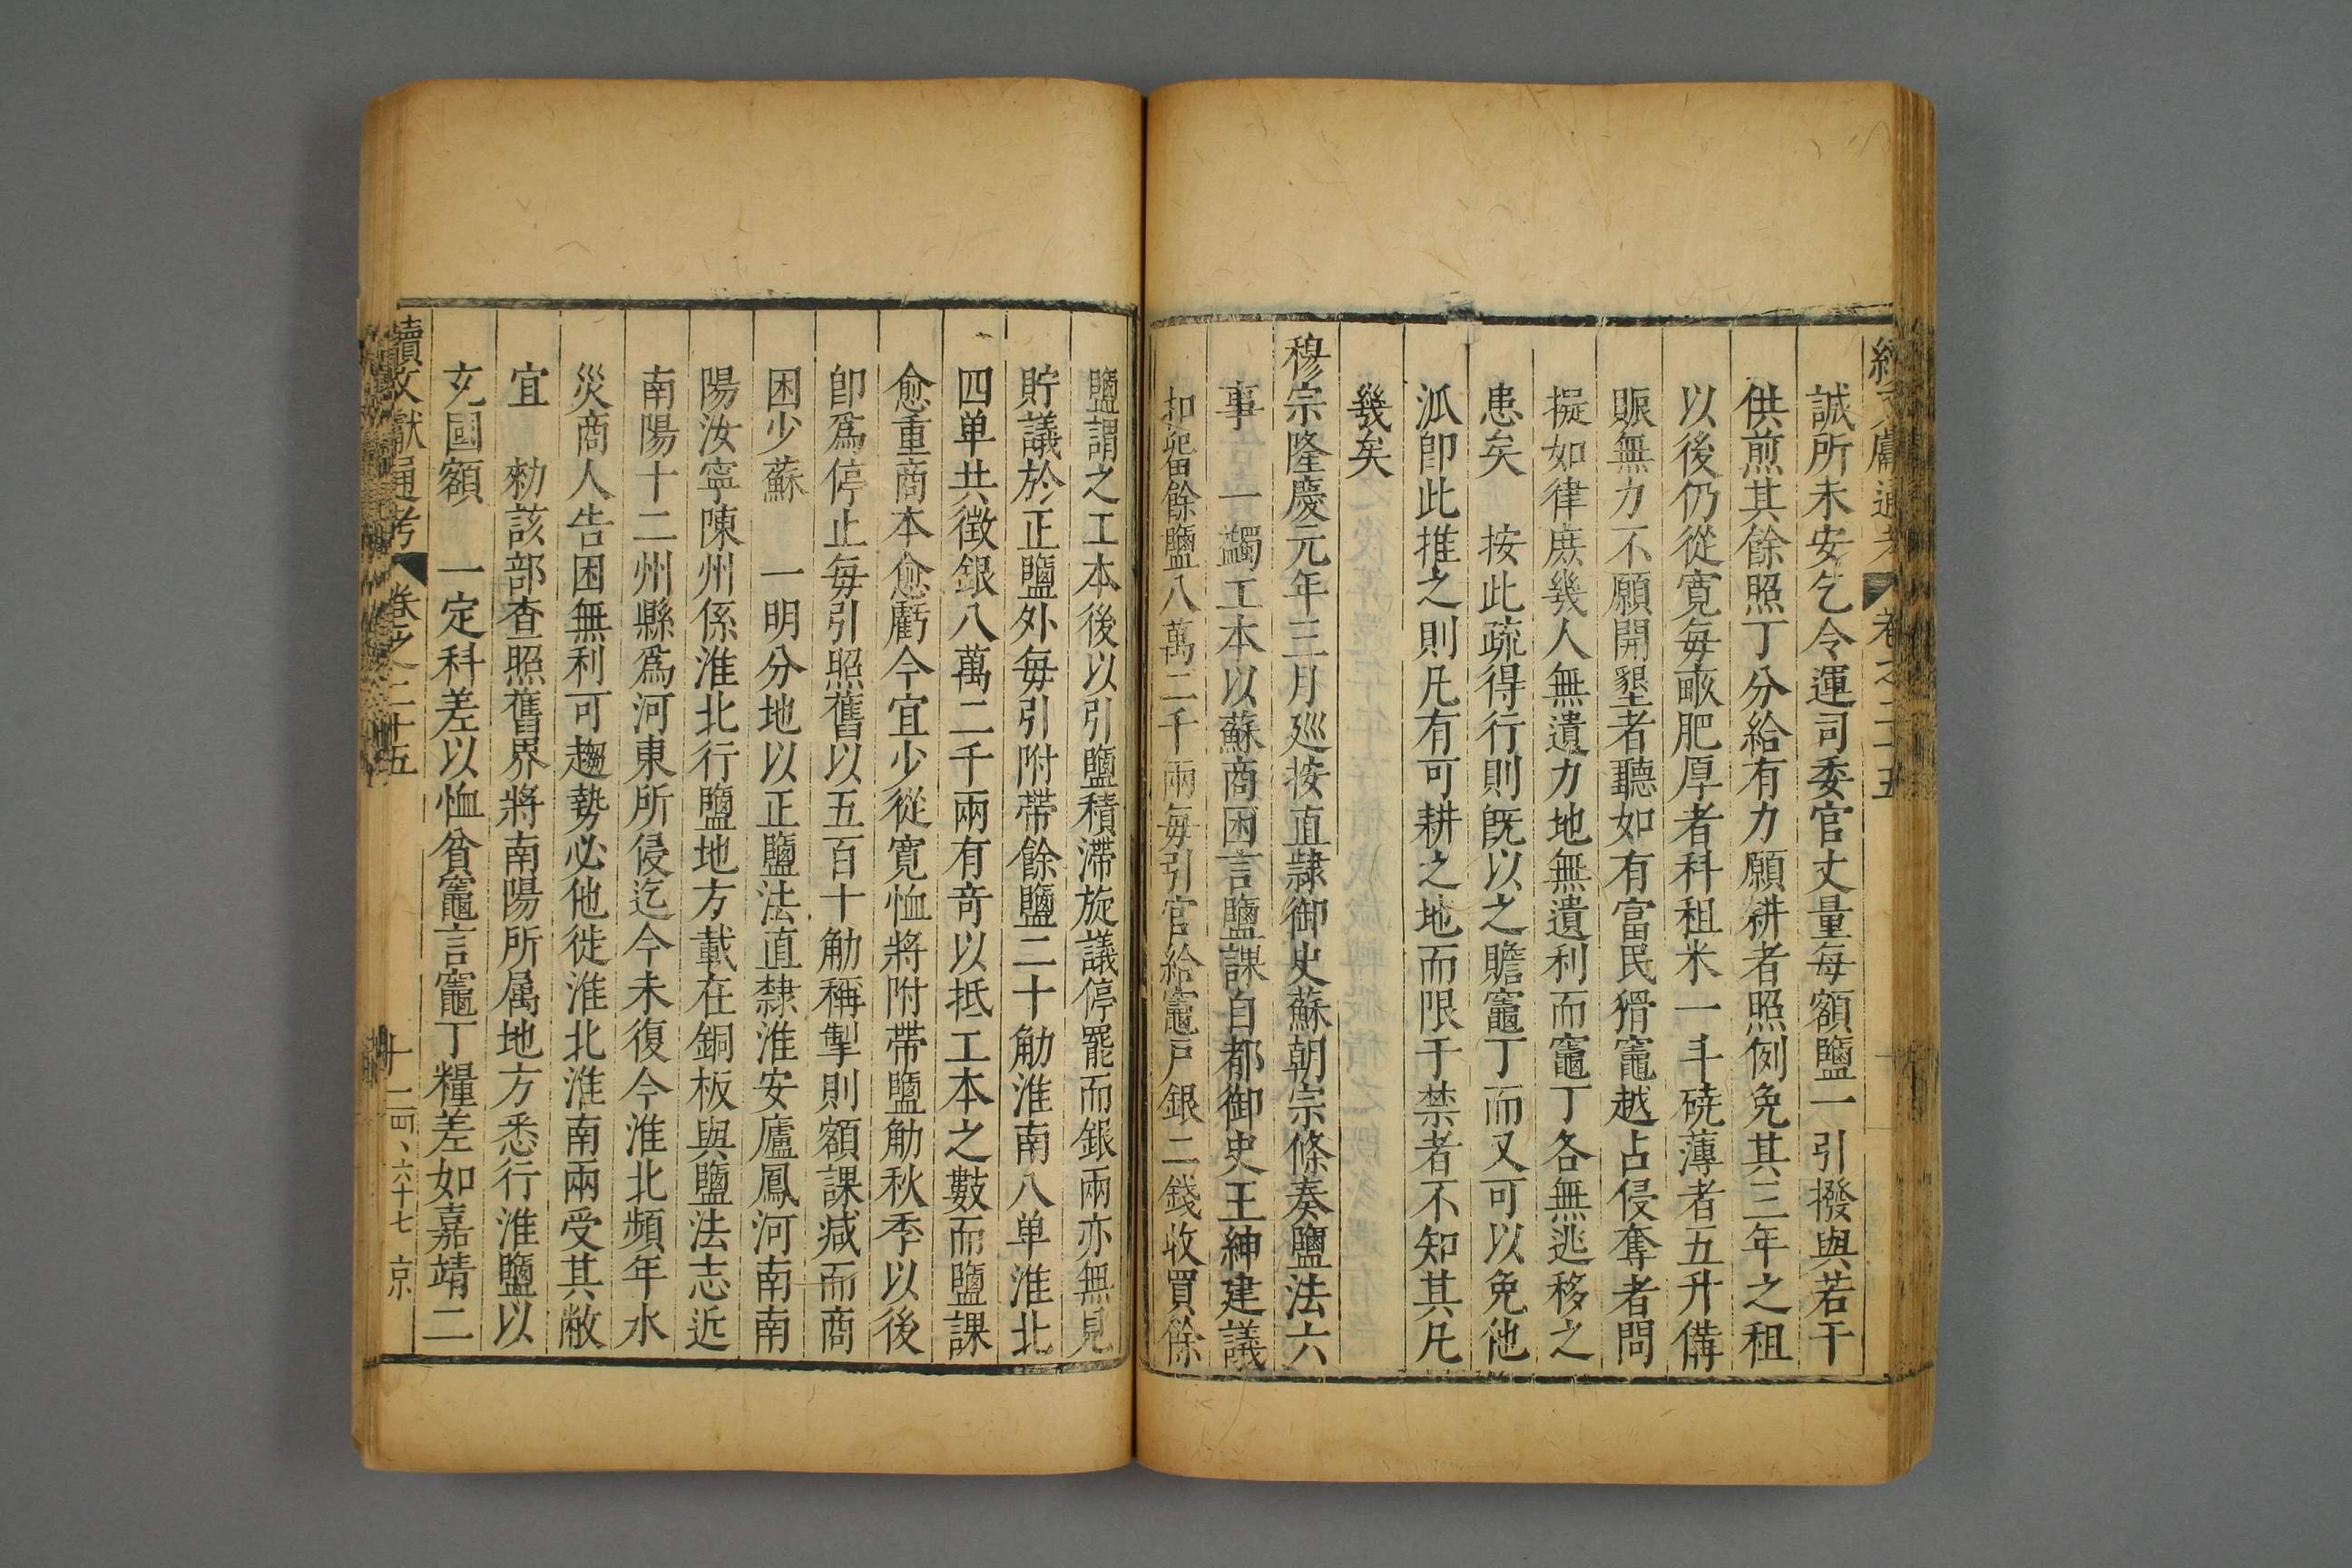 續文獻通考 卷之二十五
誠所未安乞令運司委官丈量每額鹽一引撥與若干
供煎其餘照丁分給有力願耕者照例免其三年之租
以後仍從寬每畝肥厚者科租米一斗磽薄者五升備
賑無力不願開墾者聽如有富民猾竈越占侵奪者問
擬如律庶幾人無遺力地無遺利而竈丁各無逃移之
患矣　按此疏得行則既以之贍竈丁而又可以免他
泒即此推之則凡有可耕之地而限于禁者不知其凡
幾矣
穆宗隆慶元年三月廵按直隷御史蘇朝宗條奏鹽法六
事　一蠲工本以蘇商困言鹽課自都御史王紳建議
扣留餘鹽八萬二千兩每引官給竈戸銀二錢收買餘
鹽謂之工本後以引鹽積滯旋議停罷而銀兩亦無見
貯議於正鹽外每引附帶餘鹽二十觔淮南八单淮北
四单共徴銀八萬二千兩有竒以抵工本之數而鹽課
愈重商本愈虧今宜少從寛恤將附帶鹽觔秋季以後
卽爲停止每引照舊以五百十觔稱掣則額課减而商
困少蘇　一明分地以正鹽法直隷淮安廬鳳河南南
陽汝寧陳州係淮北行鹽地方載在銅板與鹽法志近
南陽十二州縣爲河東所侵迄今未復今淮北頻年水
災商人告困無利可趨勢必他徙淮北淮南兩受其敝
宜　勑該部查照舊界將南陽所属地方悉行淮鹽以
充國額　一定科差以恤貧竈言竈丁糧差如嘉靖二
續文獻通考 卷之二十五 十一 六十七 京